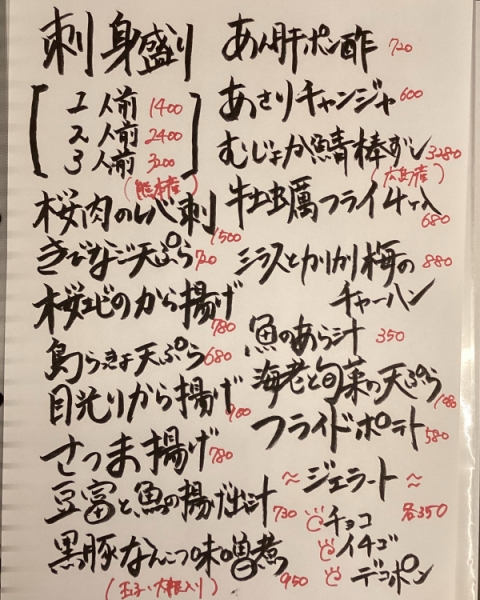 刺身盛り
1人前 1400
2人前 2400
3人前 3200
(熊本産)
桜肉のレバ刺 1500
きびなご天ぷら 720
桜エビのから揚げ 780
島らっきょ天ぷら 680
目光りから揚げ 700
さつま揚げ 780
豆富と魚の揚げ出汁 730
黒豚なんこつ味噌煮 950
(玉子・大根入り)
あん肝ポン酢 720
あさりチャンジャ 600
むじょか鯖棒ずし 3280
(広島産)
牡蠣フライ4ケ入 680
シラスとカリカリ梅の 880
チャーハン
魚のあら汁 350
海老と旬菜の天ぷら
フライドポテト 580
~ジェラート~
各350
チョコ
イチゴ
デコポン